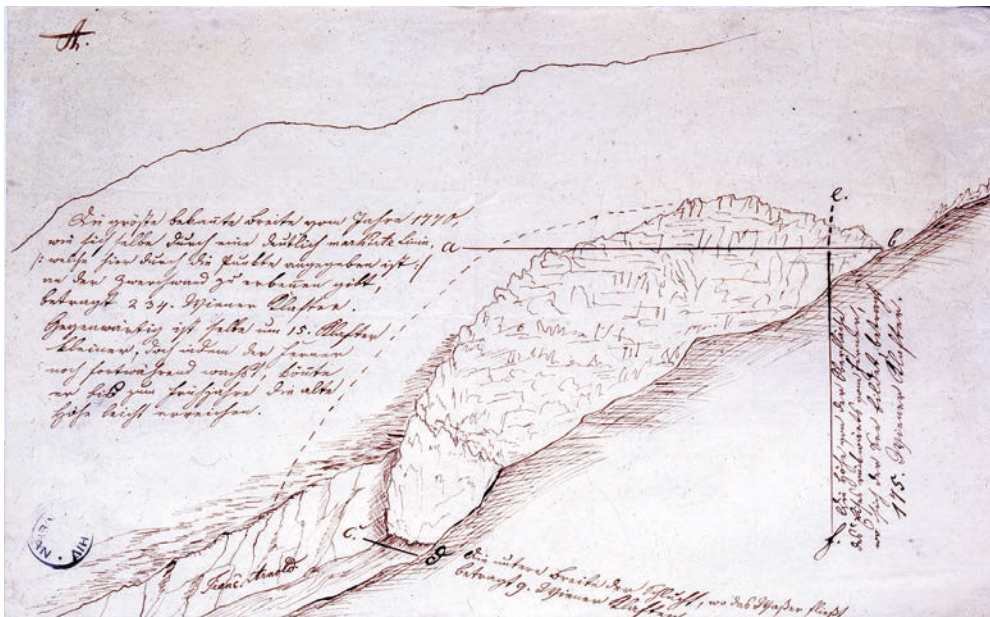 A.
Die größte bekante Breite vom Jahre 1770,
wie sich selbe durch eine deutlich markirte Linie,
/: welche hier durch die Punkte angegeben ist :/
an der Zwerchwand zu erkenen gibt,
betragt 234. Wiener Klafter.
Gegenwärtig ist selbe um 15. Klafter
kleiner, doch indem der Ferner
noch fortwährend wachst, könte
er bis zum Frühjahre die alte
Höhe leicht erreichen.
a
b
e.
f
Die Höhe von der
des Eises rückwärts
wo sich der See bildet betragt
175. Wiener Klafter.
c.
d
Die untere Breite der Schlucht, wo das Waßer fließt
betragt 9. Wiener Klafter